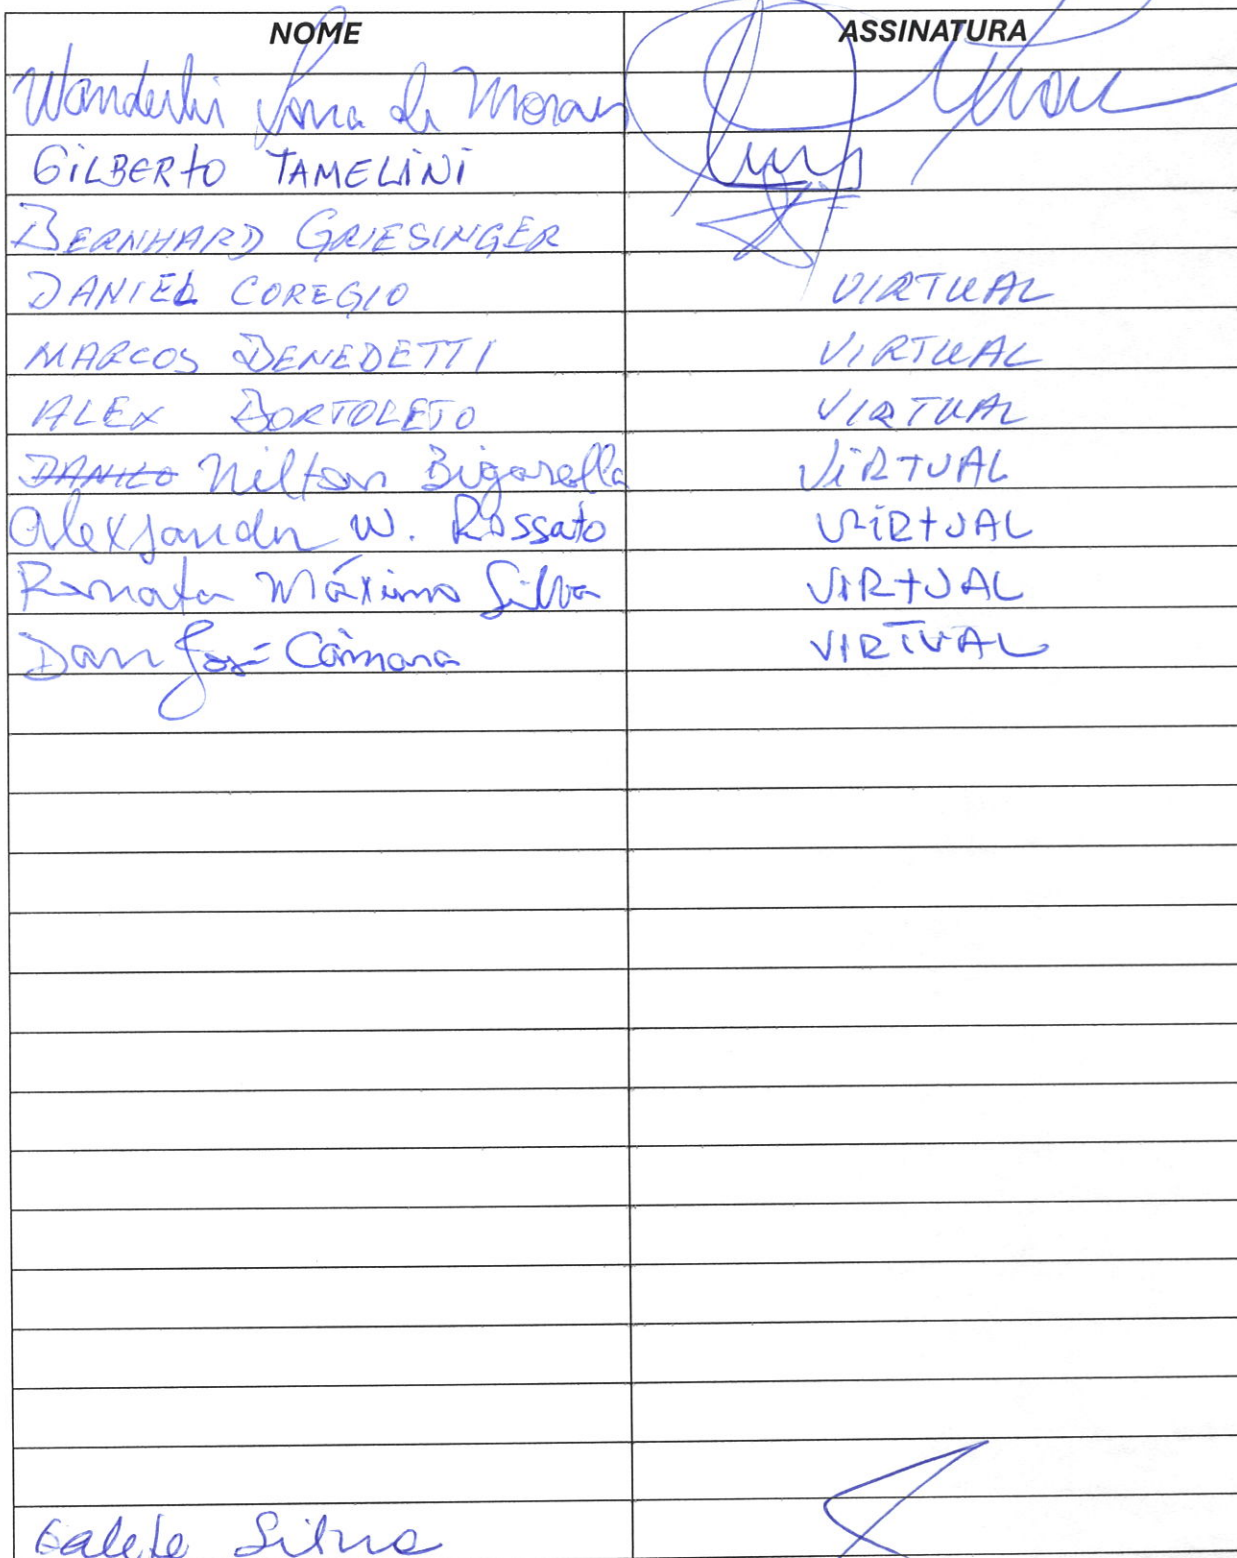 NOME ASSINATURA
Wanderlei de Moraes
GILBERTO TAMELINI
BERNHARD GRIESINGER
DANIEL COREGIO VIRTUAL
MARCOS BENEDETTI VIRTUAL
ALEX BORTOLETO VIRTUAL
DANILO Nilton Bigarella VIRTUAL
Alexsandro W. Rossato VIRTUAL
Renata Máximo Silva VIRTUAL
Dan José Câmara VIRTUAL
Silva